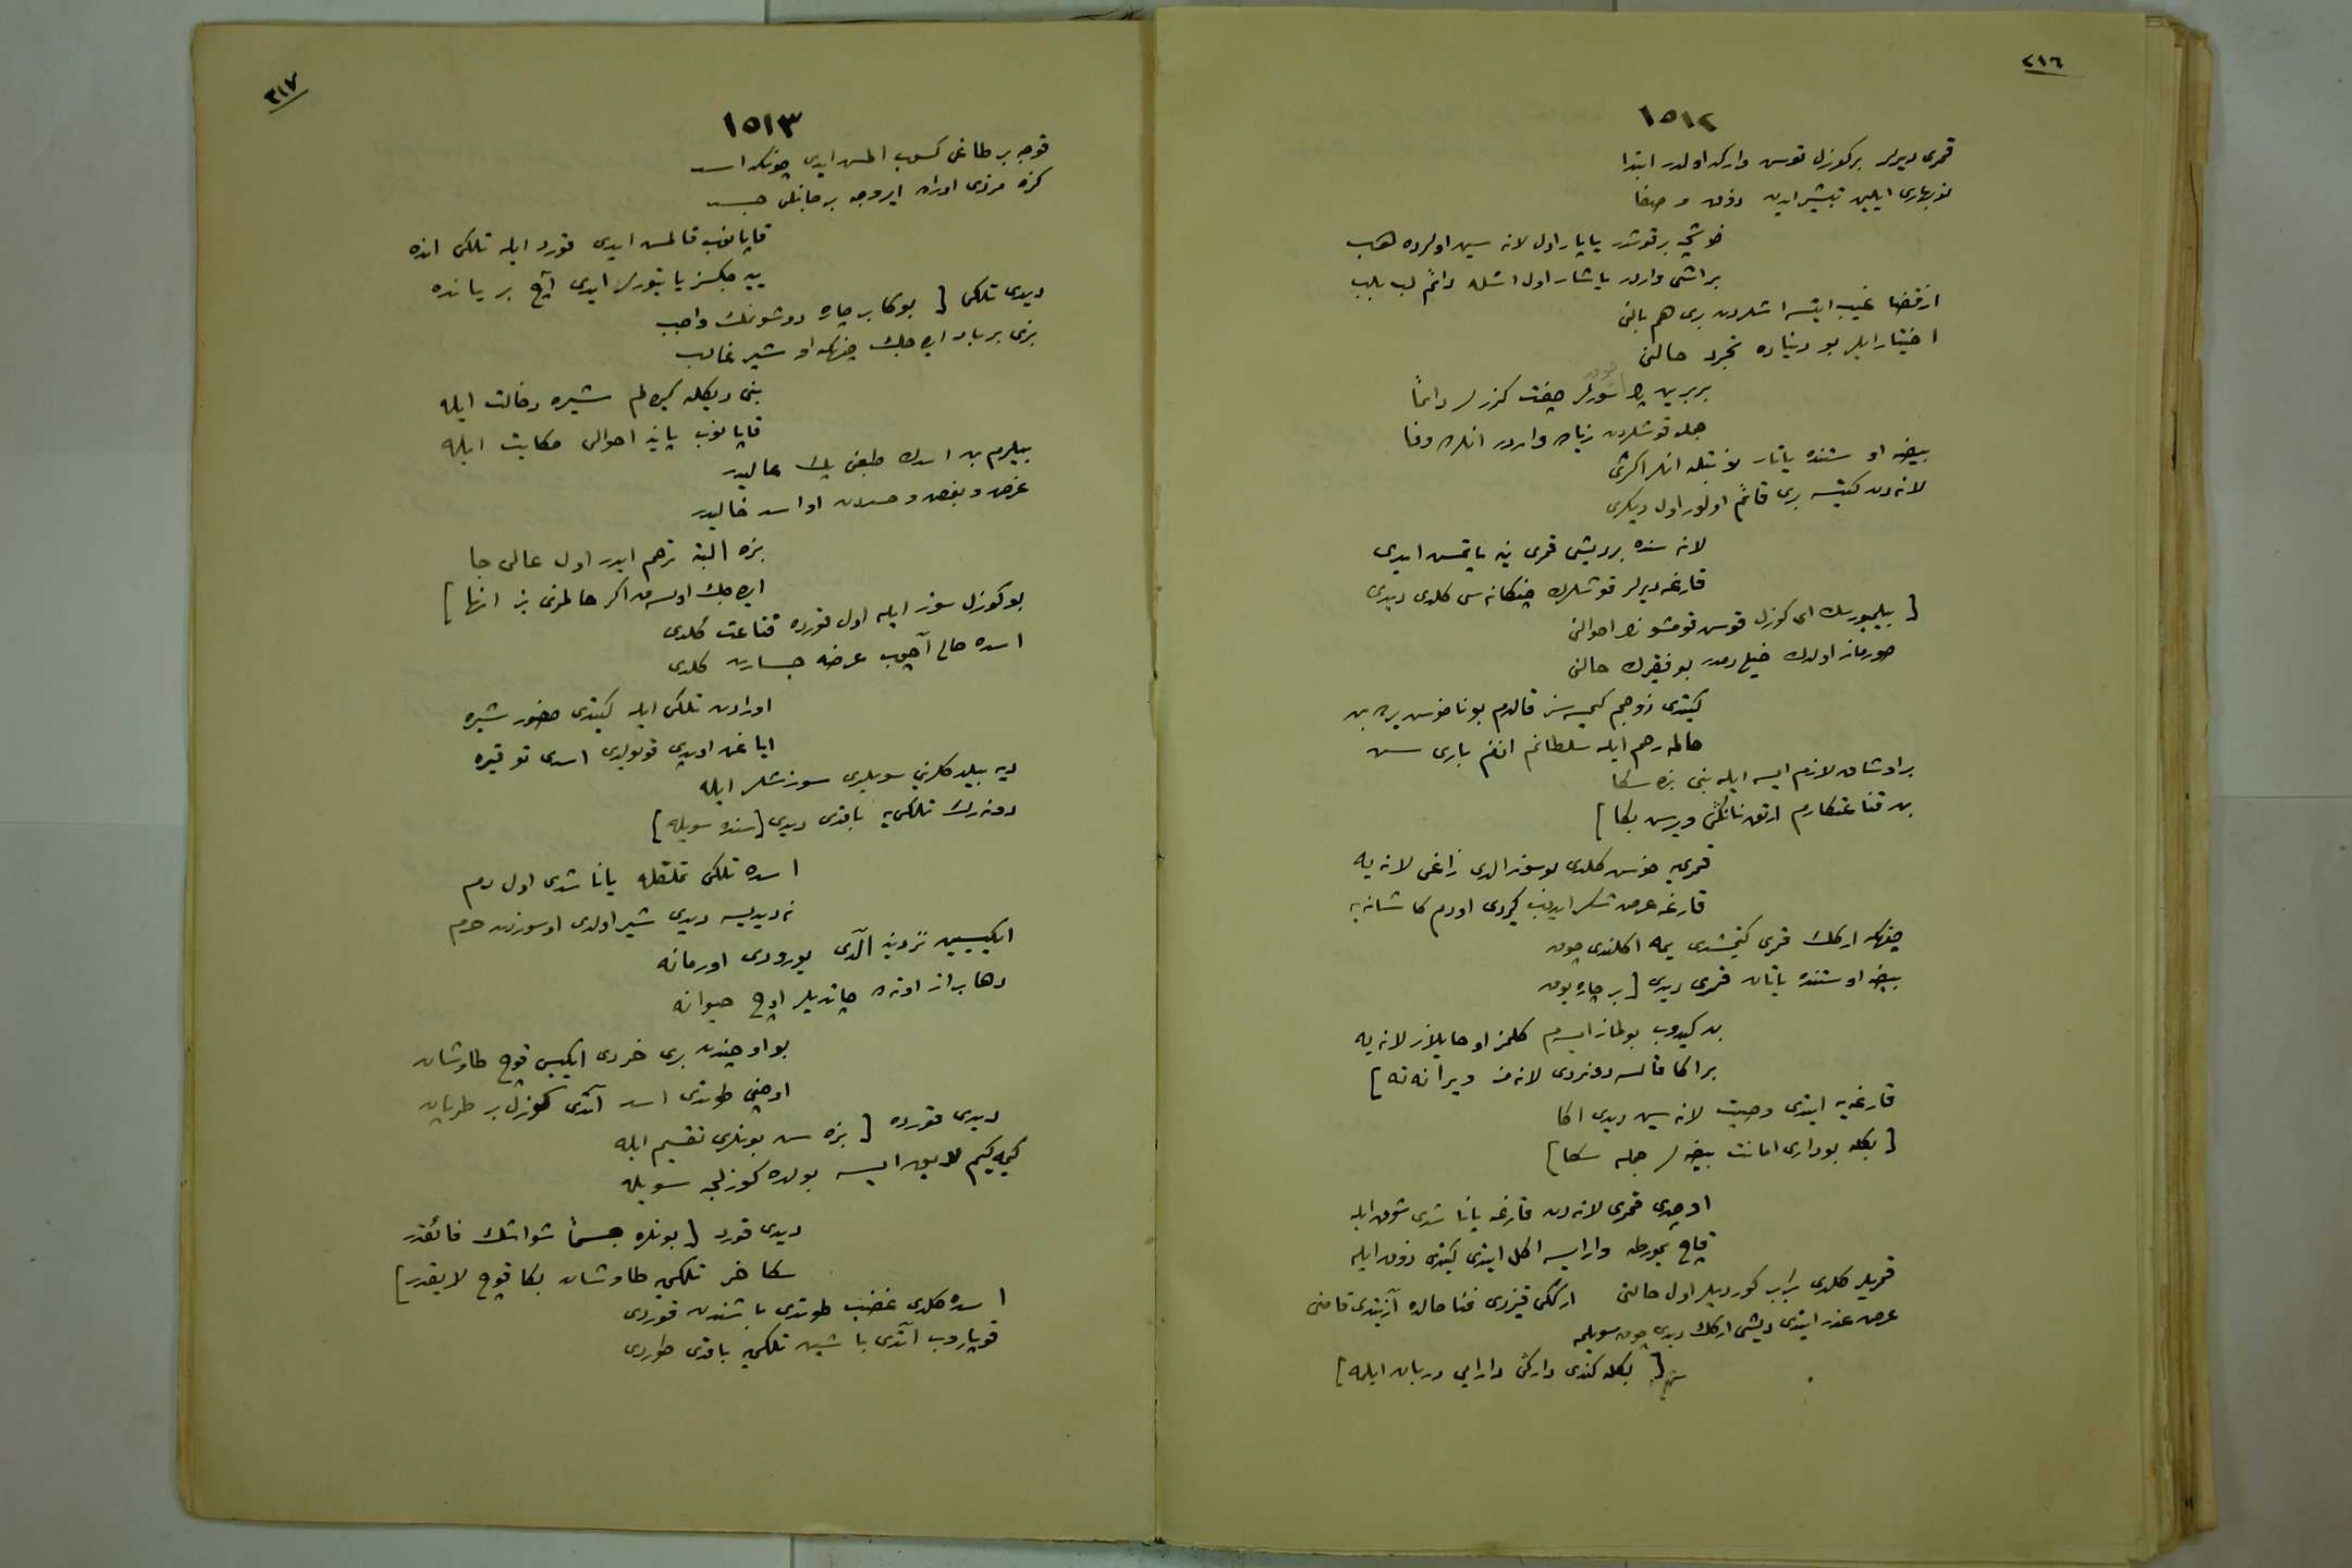 ٢١٦
١٥١٢
قمری دیرلر برکوزل قوس واركه اولدر ابتدا
نوبهاری ایلین تبشیر ایدن ذوق و صفا
خوشجه برقوشدر یاپار اول لانه سین اولرده هب
براشی واردر یاشار اول اشله دائم لب بلب
ازقضا غیب ایتسه اشلردن بری هم بالنی
اختیار ایلر بو دنیاده تجرد حالنی
بربرین چوق سورلر چفت كزرلر دائما
جمله قوشلردن زیاده واردر انلرده وفا
بیضه اوستنده یاتار نوبتله انلر اكثری
لانه دن كیتسه بری قائم اولور اول دیكری
لانه سنده بر دیشی قمری ینه یاتمس ایدی
قارغه دیرلر قوشلرك چنكانه سی كلدی دیدی
[ بیلیورسك ای كوزل قوس قومشونك احوالنی
صورماز اولدك خیلی دمدر بو فقیرك حالنی
كیتدی زوجم كیمسه سز قالدم بو ناخوس یرده بن
حالمه رحم ایله سلطانم افندم باری سن
بر اوشاق لازم ایسه ایله بنی بنده سكا
بن قناعتكارم ارتق نانكی ویرسن بكا ]
قمری یه خوس كلدی بو سوز الدی زاغی لانه یه
قارغه عرض شكر ایدوب كیردی اودم كاشانه یه
چونكه اركك قمری كیتمشدی یمه اكلندی چوق
بیضه اوستنده یاتان قمری دیدی [ بر چاره یوق
بن كیدوب بولماز ایسم كلمز او حایلاز لانه یه
براكا قالسه دونردی لانه مز ویرانه یه ]
قارغه یه ایتدی وصیت لانه سین دیدی اكا
[ بكله بو داری امانت بیضه لر جمله سكا ]
اوچدی قمری لانه دن قارغه یاناشدی شوق ایله
قاچ یمورطه وار ایسه اكل ایتدی كیتدی ذوق ایله
قمریلر كلدی برابر كوردیلر اول حالنی ارككی قیزدی فنا حالده آزیتدی قاضی
عرض عذر ایتدی دیشی اركك دیدی چوق سویلمه
[ بكله كندی داركی دارایی دربان ایلمه ]
٢١٧
١٥١٣
قوجه بر طاغی كسوب المس ایدی چونكه اسد
كزه مزدی اوراده ایروجه بر جانلی جسد
قاپانوب قالمس ایدی قورد ایله تلكی انده
ییه جكسز یاتیورلر ایدی آچ بر یانده
دیدی تلكی [ بوكا بر چاره دوشونمك واجب
بزی برباد ایده جك چونكه او شیر غالب
بنی دیكله كیده لم شیره دخالت ایله
قاپانوب یاننه احوالی حكایت ایله
بیلرم بن اسدك طبعی پك عالیدر
غرض و بغض و حسددن او اسد خالیدر
بزه البته ترحم ایدر اول عالی جا
ایده جك اولسه ق اگر حالمزی بز انها ]
بو كوزل سوز ایله اول قورده قناعت كلدی
اسده حال آچوب عرضه جسارت كلدی
اورادن تلكی ایله كیتدی حضور شیره
ایاغن اوپدی قویولدی اسدی توقیره
دیه بیلدكلرینی سویلدی سوزشلر ایله
دونه رك تلكی یه باقدی دیدی [ سنده سویله ]
اسده تلكی تملقله یاناشدی اول دم
نه دیدیسه دیدی شیر اولدی او سوزدن خرم
ایكیسین نزدینه آلدی یورودی اورمانه
دها براز اوتده چاتدیلر اوچ حیوانه
بو اوچندن بری خردی ایكیسی قوچ طاوشان
اوچنی طوتدی اسد آتدی كوزل بر طرپان
دیدی قورده [ بزه سن بونلری تقسیم ایله
كیمه كیم لایق ایسه بولده كوزلجه سویله
دیدی قورد [ بونلره جسماً شو اشك فائقدر
سكا خر تلكی یه طاوشان بكا قوچ لایقدر ]
اسده كلدی غضب طوتدی باشندن قوردی
قوپاروب آتدی باشین تلكی یه باقدی طوردی